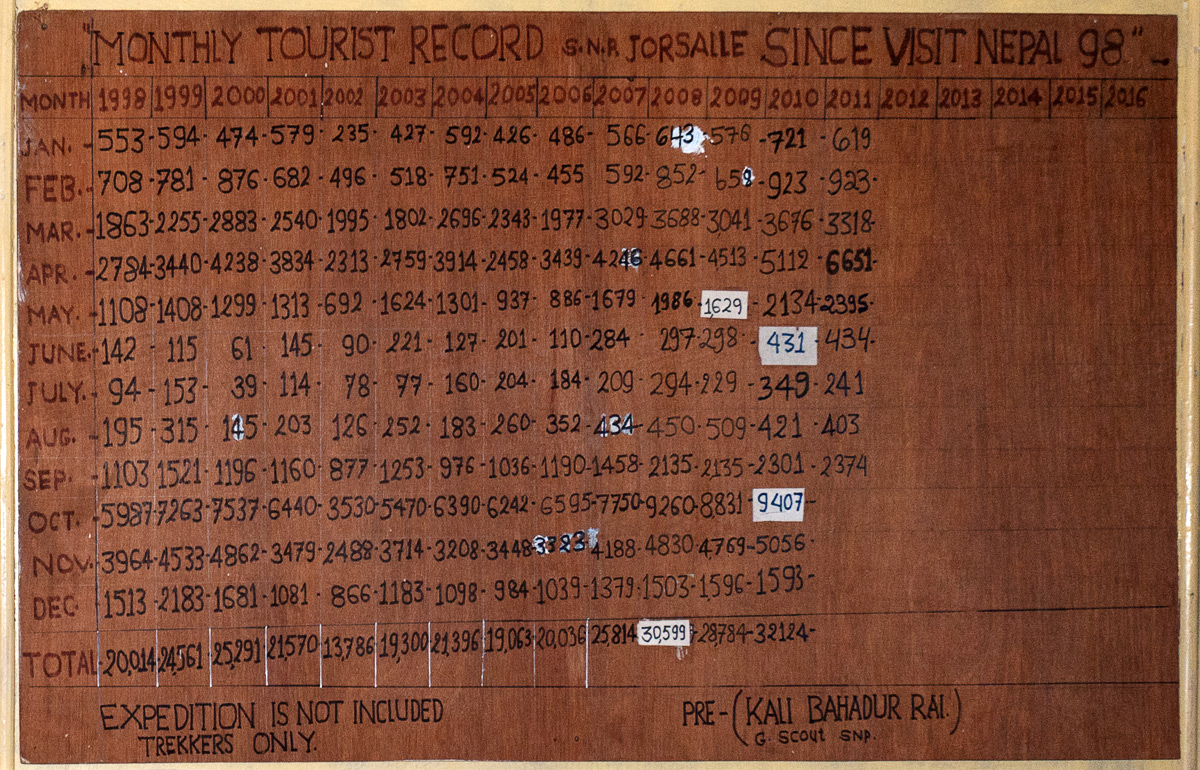 "MONTHLY TOURIST RECORD S.N.P. JORSALLE SINCE VISIT NEPAL 98"
MONTH 1998 1999 2000 2001 2002 2003 2004 2005 2006 2007 2008 2009 2010 2011 2012 2013 2014 2015 2016
JAN. - 553 - 594 - 474 - 579 - 235 - 427 - 592 - 426 - 486 - 566 - 643 - 576 - 721 - 619
FEB. - 708 - 781 - 876 - 682 - 496 - 518 - 751 - 524 - 455 592 - 852 - 658 - 923 - 923 -
MAR. - 1863 - 2255 - 2883 - 2540 - 1995 - 1802 - 2696 - 2343 - 1977 - 3029 - 3688 - 3041 - 3676 - 3318 -
APR. - 2784 - 3440 - 4238 - 3834 - 2313 - 2759 - 3914 - 2458 - 3439 - 4246 - 4661 - 4513 - 5112 - 6651 -
MAY. - 1108 - 1408 - 1299 - 1313 - 692 - 1624 - 1301 - 937 - 886 - 1679 - 1986 - 1,629 - 2134 - 2395 -
JUNE. - 142 - 115 61 - 145 - 90 - 221 - 127 - 201 - 110 - 284 - 297 - 298 - 431 - 434 -
JULY. - 94 - 153 - 39 - 114 - 78 - 77 - 160 - 204 - 184 - 209 - 294 - 229 - 349 - 241
AUG. - 195 - 315 - 145 - 203 126 - 252 - 183 - 260 - 352 - 434 - 450 - 509 - 421 - 403
SEP. - 1103 1521 - 1196 - 1160 - 877 - 1253 - 976 - 1036 - 1190 - 1458 - 2135 - 2,135 - 2301 - 2374
OCT. - 5987 - 7263 - 7537 - 6440 - 3530 - 5470 - 6390 - 6242 - 6595 - 7750 - 9260 - 8,831 - 9407 -
NOV. - 3964 - 4533 - 4862 - 3479 - 2488 - 3714 - 3208 - 3448 - 3323 - 4188 - 4830 - 4,769 - 5056 -
DEC - 1513 - 2183 - 1681 - 1081 - 866 - 1183 - 1098 - 984 - 1039 - 1379 - 1503 - 1,596 - 1593 -
TOTAL 20,014 24,561 25,291 21,570 13,786 19,300 21,396 19,063 20,036 25,814 30,599 - 28,784 - 32124 -
EXPEDITION IS NOT INCLUDED
TREKKERS ONLY.
PRE - (KALI BAHADUR RAI.)
G. SCOUT SNP.